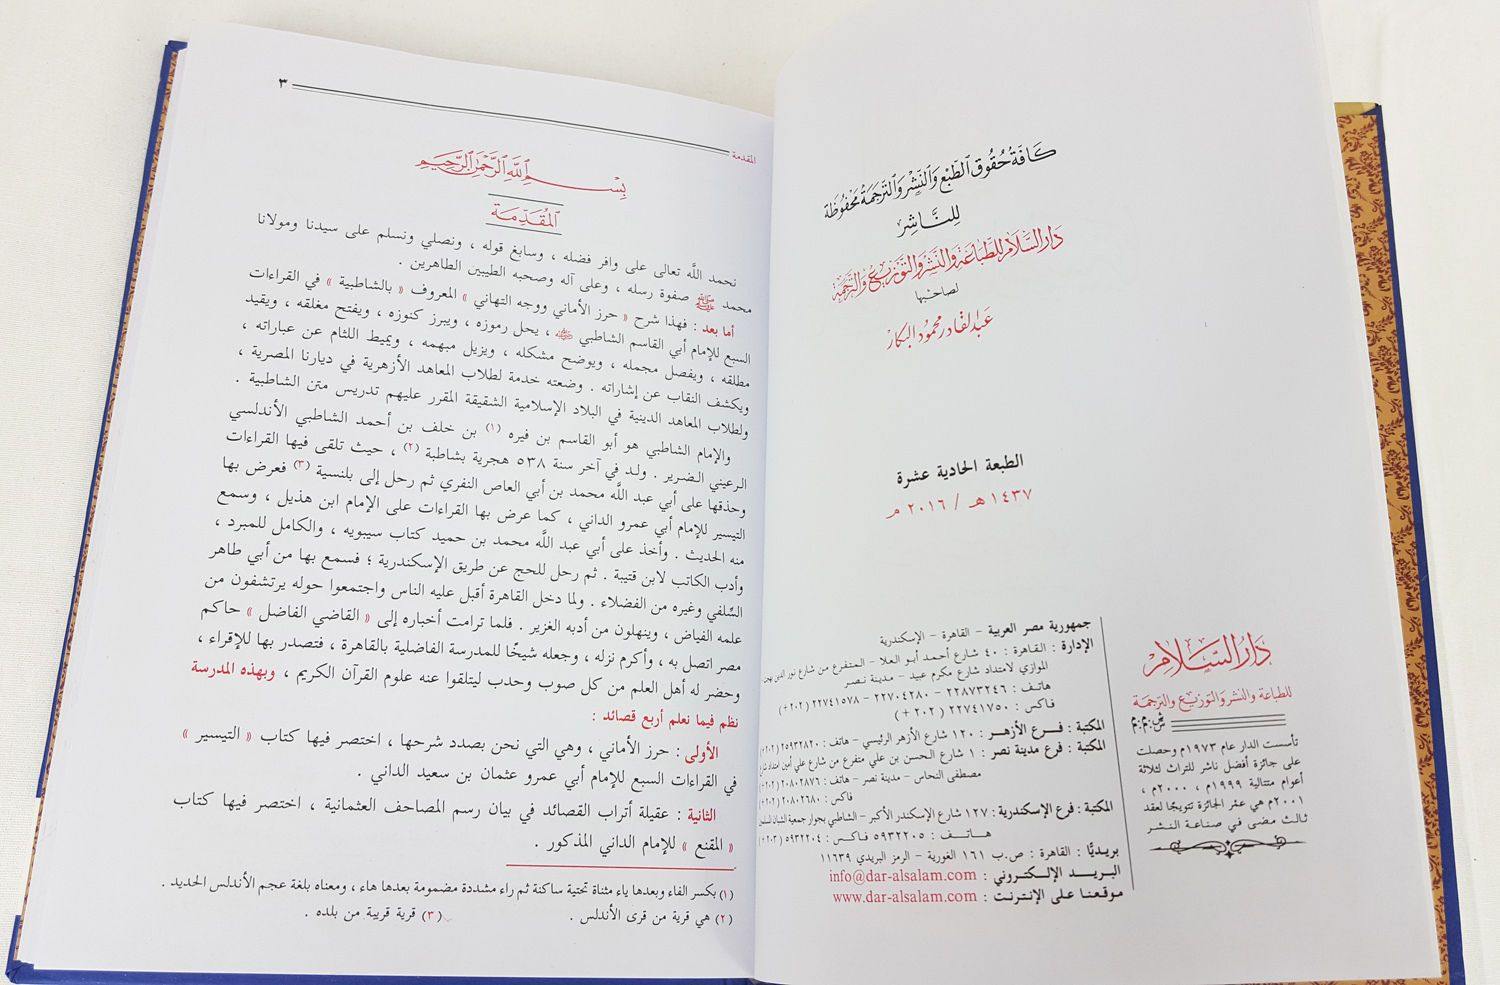 كَافَةُ حُقُوقِ الطَّبْعِ وَالنَّشْرِ وَالتَّرْجَمَةِ مَحْفُوظَة
لِلنَّاشِرِ
دَارُ السَّلَامِ لِلطِّبَاعَةِ وَالنَّشْرِ وَالتَّوْزِيعِ وَالتَّرْجَمَةِ
لصاحبها
عبدالقادر محمود البكار
الطبعة الحادية عشرة
١٤٣٧ هـ / ٢٠١٦ مـ
دَارُ السَّلَامِ
للطباعة والنشر والتوزيع والترجمة
ش.م.م
تأسست الدار عام ١٩٧٣م وحصلت
على جائزة أفضل ناشر للتراث لثلاثة
أعوام متتالية ١٩٩٩م ، ٢٠٠٠م ،
٢٠٠١م هي عشر الجائزة تتويجًا لعقد
ثالث مضى في صناعة النشر
جمهورية مصر العربية – القاهرة – الإسكندرية
الإدارة : القاهرة : ٤٠ شارع أحمد أبو العلا – المتفرع من شارع نور الدين بهجت
الموازي لامتداد شارع مكرم عبيد – مدينة نصر
هاتف : ٢٢٨٧٣٢٤٦ – ٢٢٧٠٤٢٨٠ – ٢٢٧٤١٥٧٨ (٢٠٢ +)
فاكس : ٢٢٧٤١٧٥٠ (٢٠٢ +)
المكتبة : فرع الأزهر : ١٢٠ شارع الأزهر الرئيسي – هاتف : ٢٥٩٣٢٨٢٠ (٢٠٢+)
المكتبة : فرع مدينة نصر : ١ شارع الحسن بن علي متفرع من شارع علي أمين امتداد شارع
مصطفى النحاس – مدينة نصر – هاتف : ٢٠٨٠٢٨٧٦ (٢٠٢+)
فاكس : ٢٠٨٠٢٦٨٠ (٢٠٢+)
المكتبة : فرع الإسكندرية : ١٢٧ شارع الإسكندر الأكبر – الشاطبي بجوار جمعية الشبان المسلمين
هاتف : ٥٩٣٢٢٠٥ فاكس : ٥٩٣٢٢٠٤ (٢٠٣+)
بريديًّا : القاهرة : ص.ب ١٦١ الغورية – الرمز البريدي ١١٦٣٩
البريد الإلكتروني : info@dar-alsalam.com
موقعنا على الإنترنت : www.dar-alsalam.com
المقدمة
٣
بِسْمِ اللَّهِ الرَّحْمَنِ الرَّحِيمِ
المُقَدِّمَة
نحمد اللَّه تعالى على وافر فضله ، وسابغ قوله ، ونصلي ونسلم على سيدنا ومولانا
محمد ﷺ صفوة رسله ، وعلى آله وصحبه الطيبين الطاهرين .
أما بعد : فهذا شرح « حرز الأماني ووجه التهاني » المعروف « بالشاطبية » في القراءات
السبع للإمام أبي القاسم الشاطبي ، يحل رموزه ، ويبرز كنوزه ، ويفتح مغلقه ، ويقيد
مطلقه ، ويفصل مجمله ، ويوضح مشكله ، ويزيل مبهمه ، ويميط اللثام عن عباراته ،
ويكشف النقاب عن إشاراته . وضعته خدمة لطلاب المعاهد الأزهرية في ديارنا المصرية ،
ولطلاب المعاهد الدينية في البلاد الإسلامية الشقيقة المقرر عليهم تدريس متن الشاطبية .
والإمام الشاطبي هو أبو القاسم بن فيره (١) بن خلف بن أحمد الشاطبي الأندلسي
الرعيني الضرير . ولد في آخر سنة ٥٣٨ هجرية بشاطبة (٢) ، حيث تلقى فيها القراءات
وحذقها على أبي عبد اللَّه محمد بن أبي العاص النفري ثم رحل إلى بلنسية (٣) فعرض بها
التيسير للإمام أبي عمرو الداني ، كما عرض بها القراءات على الإمام ابن هذيل ، وسمع
منه الحديث . وأخذ على أبي عبد اللَّه محمد بن حميد كتاب سيبويه ، والكامل للمبرد ،
وأدب الكاتب لابن قتيبة . ثم رحل للحج عن طريق الإسكندرية ؛ فسمع بها من أبي طاهر
السِّلفي وغيره من الفضلاء . ولما دخل القاهرة أقبل عليه الناس واجتمعوا حوله يرتشفون من
علمه الفياض ، وينهلون من أدبه الغزير . فلما ترامت أخباره إلى « القاضي الفاضل » حاكم
مصر اتصل به ، وأكرم نزله ، وجعله شيخًا للمدرسة الفاضلية بالقاهرة ، فتصدر بها للإقراء ،
وحضر له أهل العلم من كل صوب وحدب ليتلقوا عنه علوم القرآن الكريم ، وبهذه المدرسة
نظم فيما نعلم أربع قصائد :
الأولى : حرز الأماني ، وهي التي نحن بصدد شرحها ، اختصر فيها كتاب « التيسير »
في القراءات السبع للإمام أبي عمرو عثمان بن سعيد الداني .
الثانية : عقيلة أتراب القصائد في بيان رسم المصاحف العثمانية ، اختصر فيها كتاب
« المقنع » للإمام الداني المذكور .
(١) بكسر الفاء وبعدها ياء مثناة تحتية ساكنة ثم راء مشددة مضمومة بعدها هاء ، ومعناه بلغة عجم الأندلس الحديد .
(٢) هي قرية من قرى الأندلس . (٣) قرية قريبة من بلده .